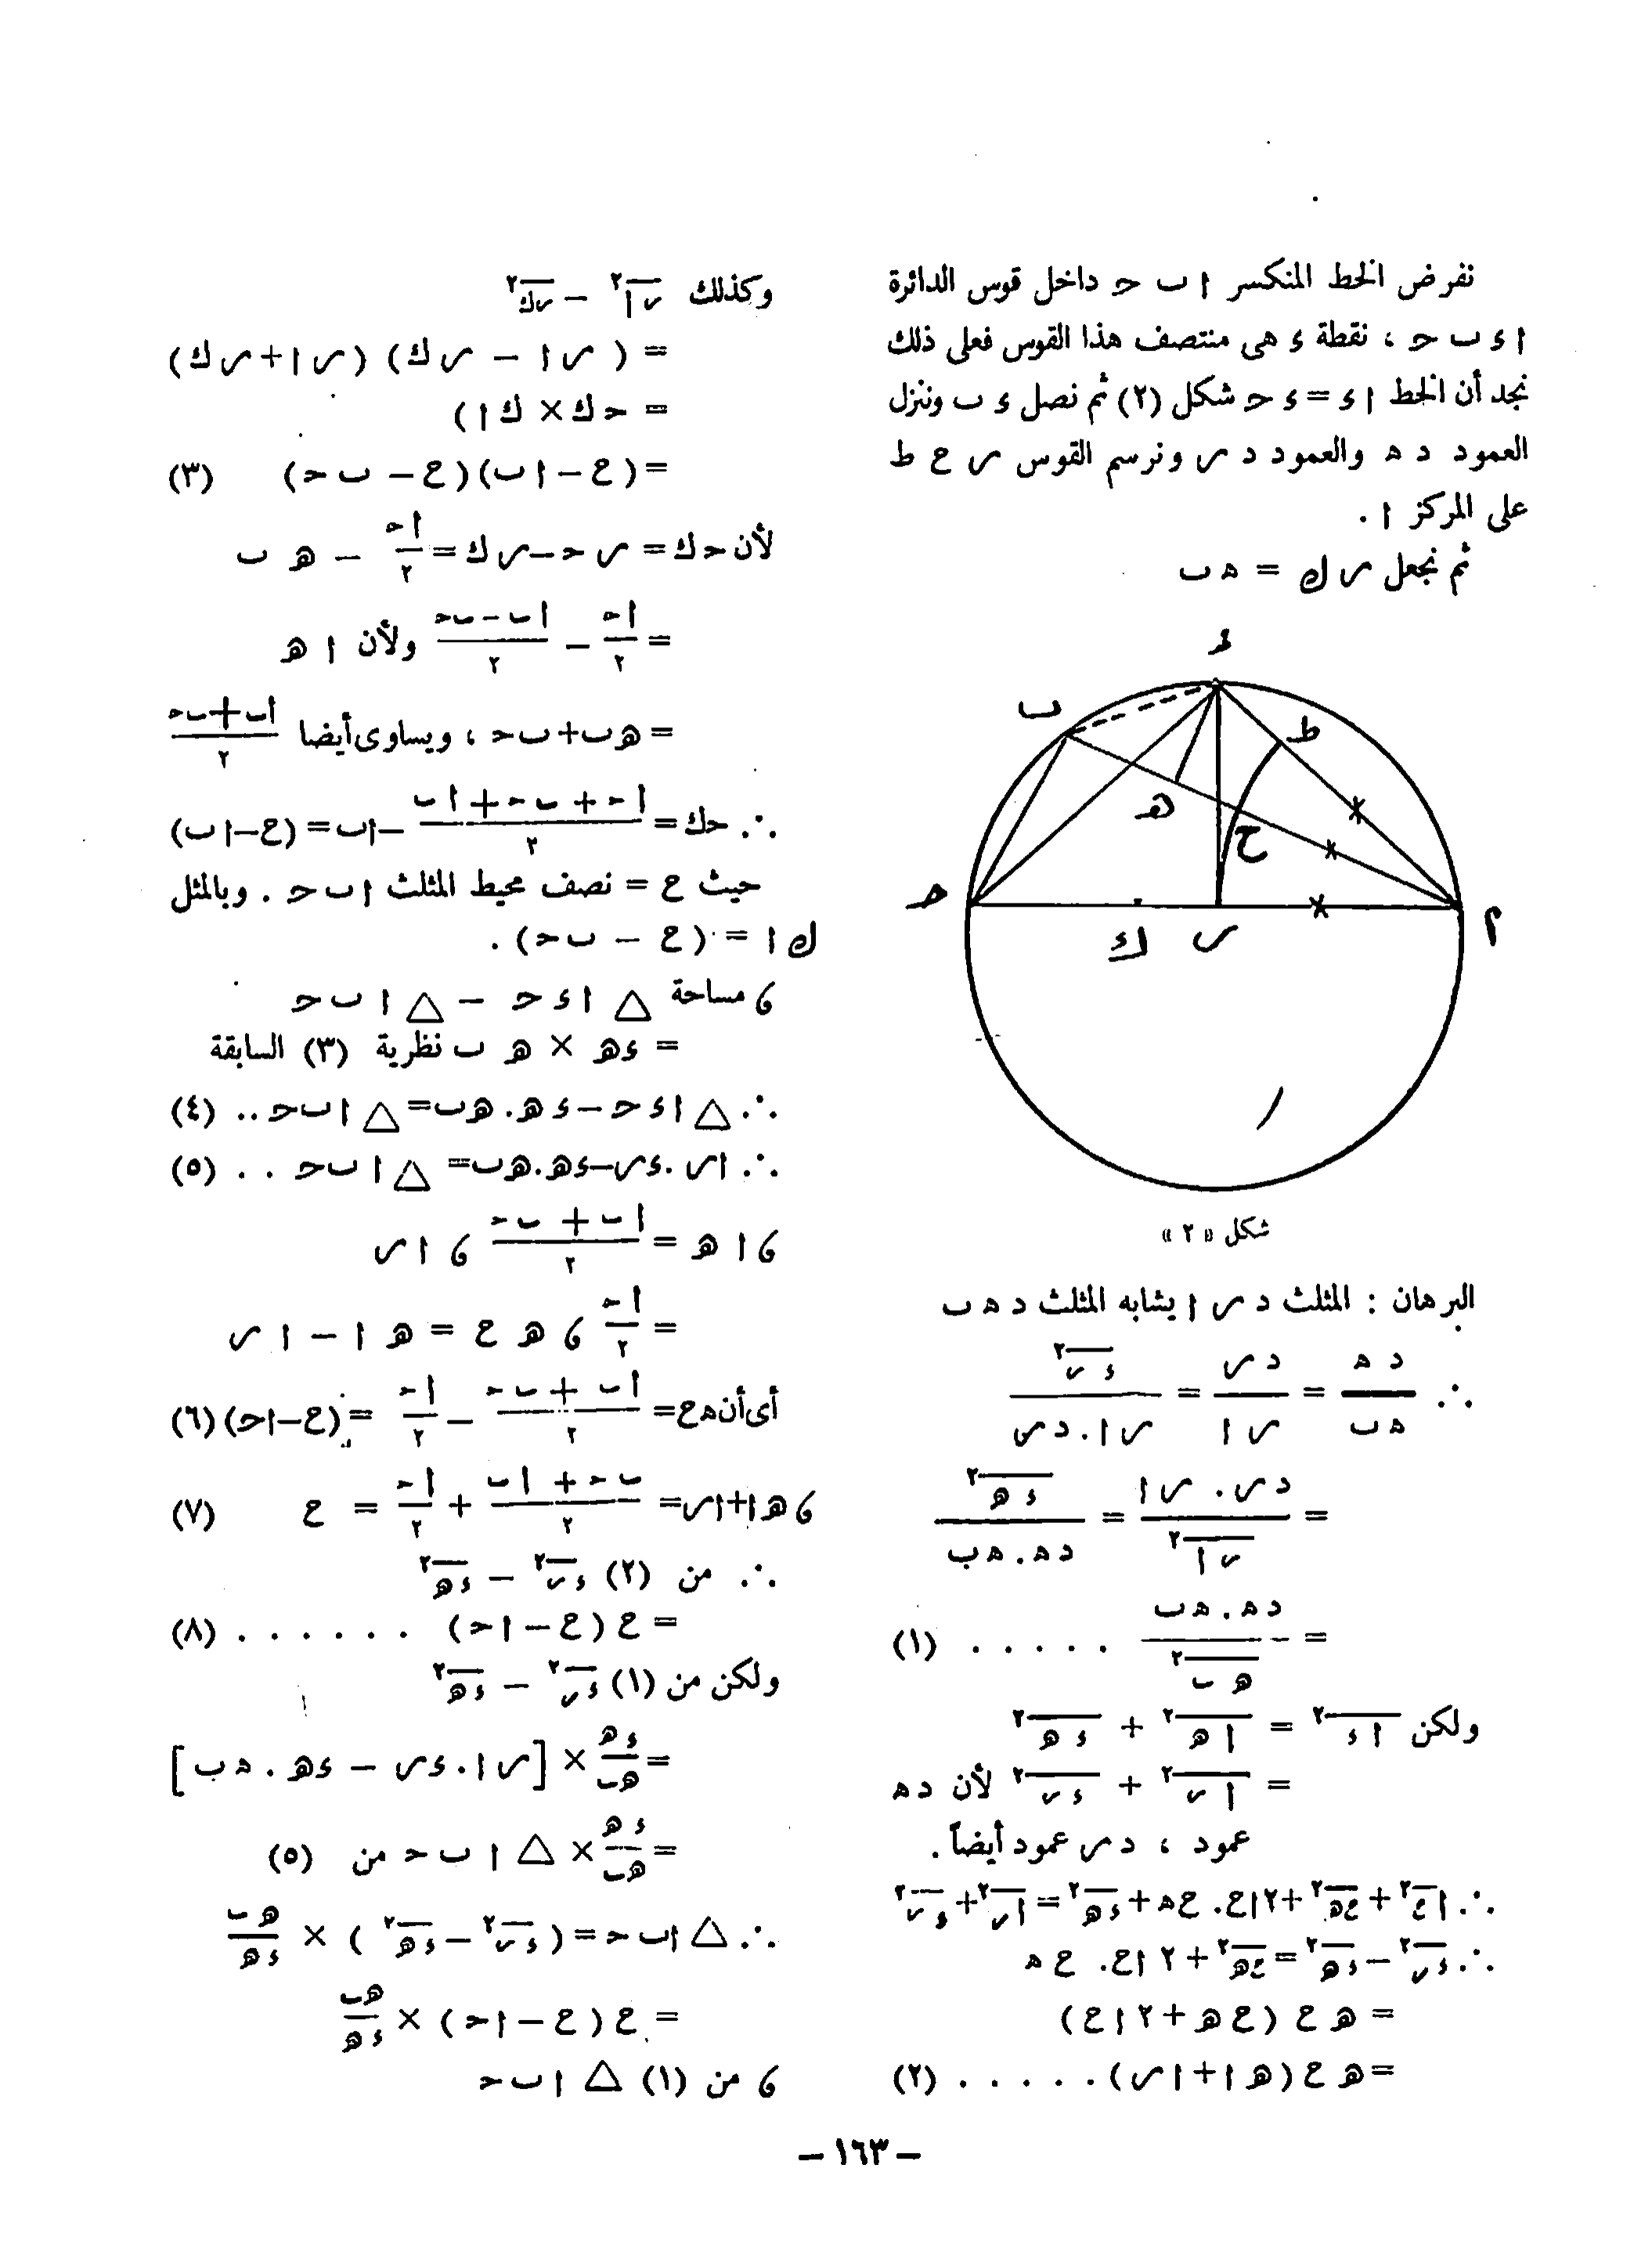 نفرض الخط المنكسر ا ب ح داخل قوس الدائرة
ا ء ب ح ، نقطة ء هى منتصف هذا القوس فعلى ذلك
نجد أن الخط ا ء = ء ح شكل (٢) ثم نصل ء ب وننزل
العمود د ه والعمود د س ونرسم القوس س ع ط
على المركز ا .
ثم نجعل س ك = ه ب
ء
ب
ط
ه
ع
ح
ك
س
ا
شكل « ٢ »
البرهان : المثلث د س ا يشابه المثلث د ه ب
∴ د ه / ه ب = د س / س ا = ء س٢ / س ا . د س
= د س . س ا / س ا٢ = ء ه٢ / د ه . ه ب
= د ه . ه ب / ه ب٢ . . . . . (١)
ولكن ا ء٢ = ا ه٢ + ء ه٢
= ا س٢ + ء س٢ لأن د ه
عمود ، د س عمود أيضاً .
∴ ا ع٢ + ع ه٢ + ٢ ا ع . ع ه + ء ه٢ = ا س٢ + ء س٢
∴ ء س٢ − ء ه٢ = ع ه٢ + ٢ ا ع . ع ه
= ه ع (ع ه + ٢ ا ع)
= ه ع (ه ا + ا س) . . . . . (٢)
وكذلك س ا٢ − س ك٢
= (س ا − س ك) (س ا + س ك)
= ح ك × ك ا)
= (ع − ا ب) (ع − ب ح) (٣)
لأن ح ك = س ح − س ك = ا ح / ٢ − ه ب
= ا ح / ٢ − ا ب − ب ح / ٢ ولأن ا ه
= ه ب + ب ح ، ويساوى أيضا ا ب + ب ح / ٢
∴ ح ك = ا ح + ب ح + ا ب / ٢ − ا ب = (ع − ا ب)
حيث ع = نصف محيط المثلث ا ب ح . وبالمثل
ك ا = (ع − ب ح) .
، مساحة △ ا ء ح − △ ا ب ح
= ء ه × ه ب نظرية (٣) السابقة
∴ △ ا ء ح − ء ه . ه ب = △ ا ب ح .. (٤)
∴ ا س . ء س − ء ه . ه ب = △ ا ب ح . . (٥)
، ا ه = ا ب + ب ح / ٢ ، ا س
= ا ح / ٢ ، ه ع = ه ا − ا س
أى أن ه ع = ا ب + ب ح / ٢ − ا ح / ٢ = (ع − ا ح) (٦)
، ه ا + ا س = ب ح + ا ب / ٢ + ا ح / ٢ = ع (٧)
∴ من (٢) ء س٢ − ء ه٢
= ع (ع − ا ح) . . . . . . (٨)
ولكن من (١) ء س٢ − ء ه٢
= ء ه / ه ب × [س ا . ء س − ء ه . ه ب]
= ء ه / ه ب × △ ا ب ح من (٥)
∴ △ ا ب ح = (ء س٢ − ء ه٢) × ه ب / ء ه
= ع (ع − ا ح) × ه ب / ء ه
، من (١) △ ا ب ح
– ١٦٣ –